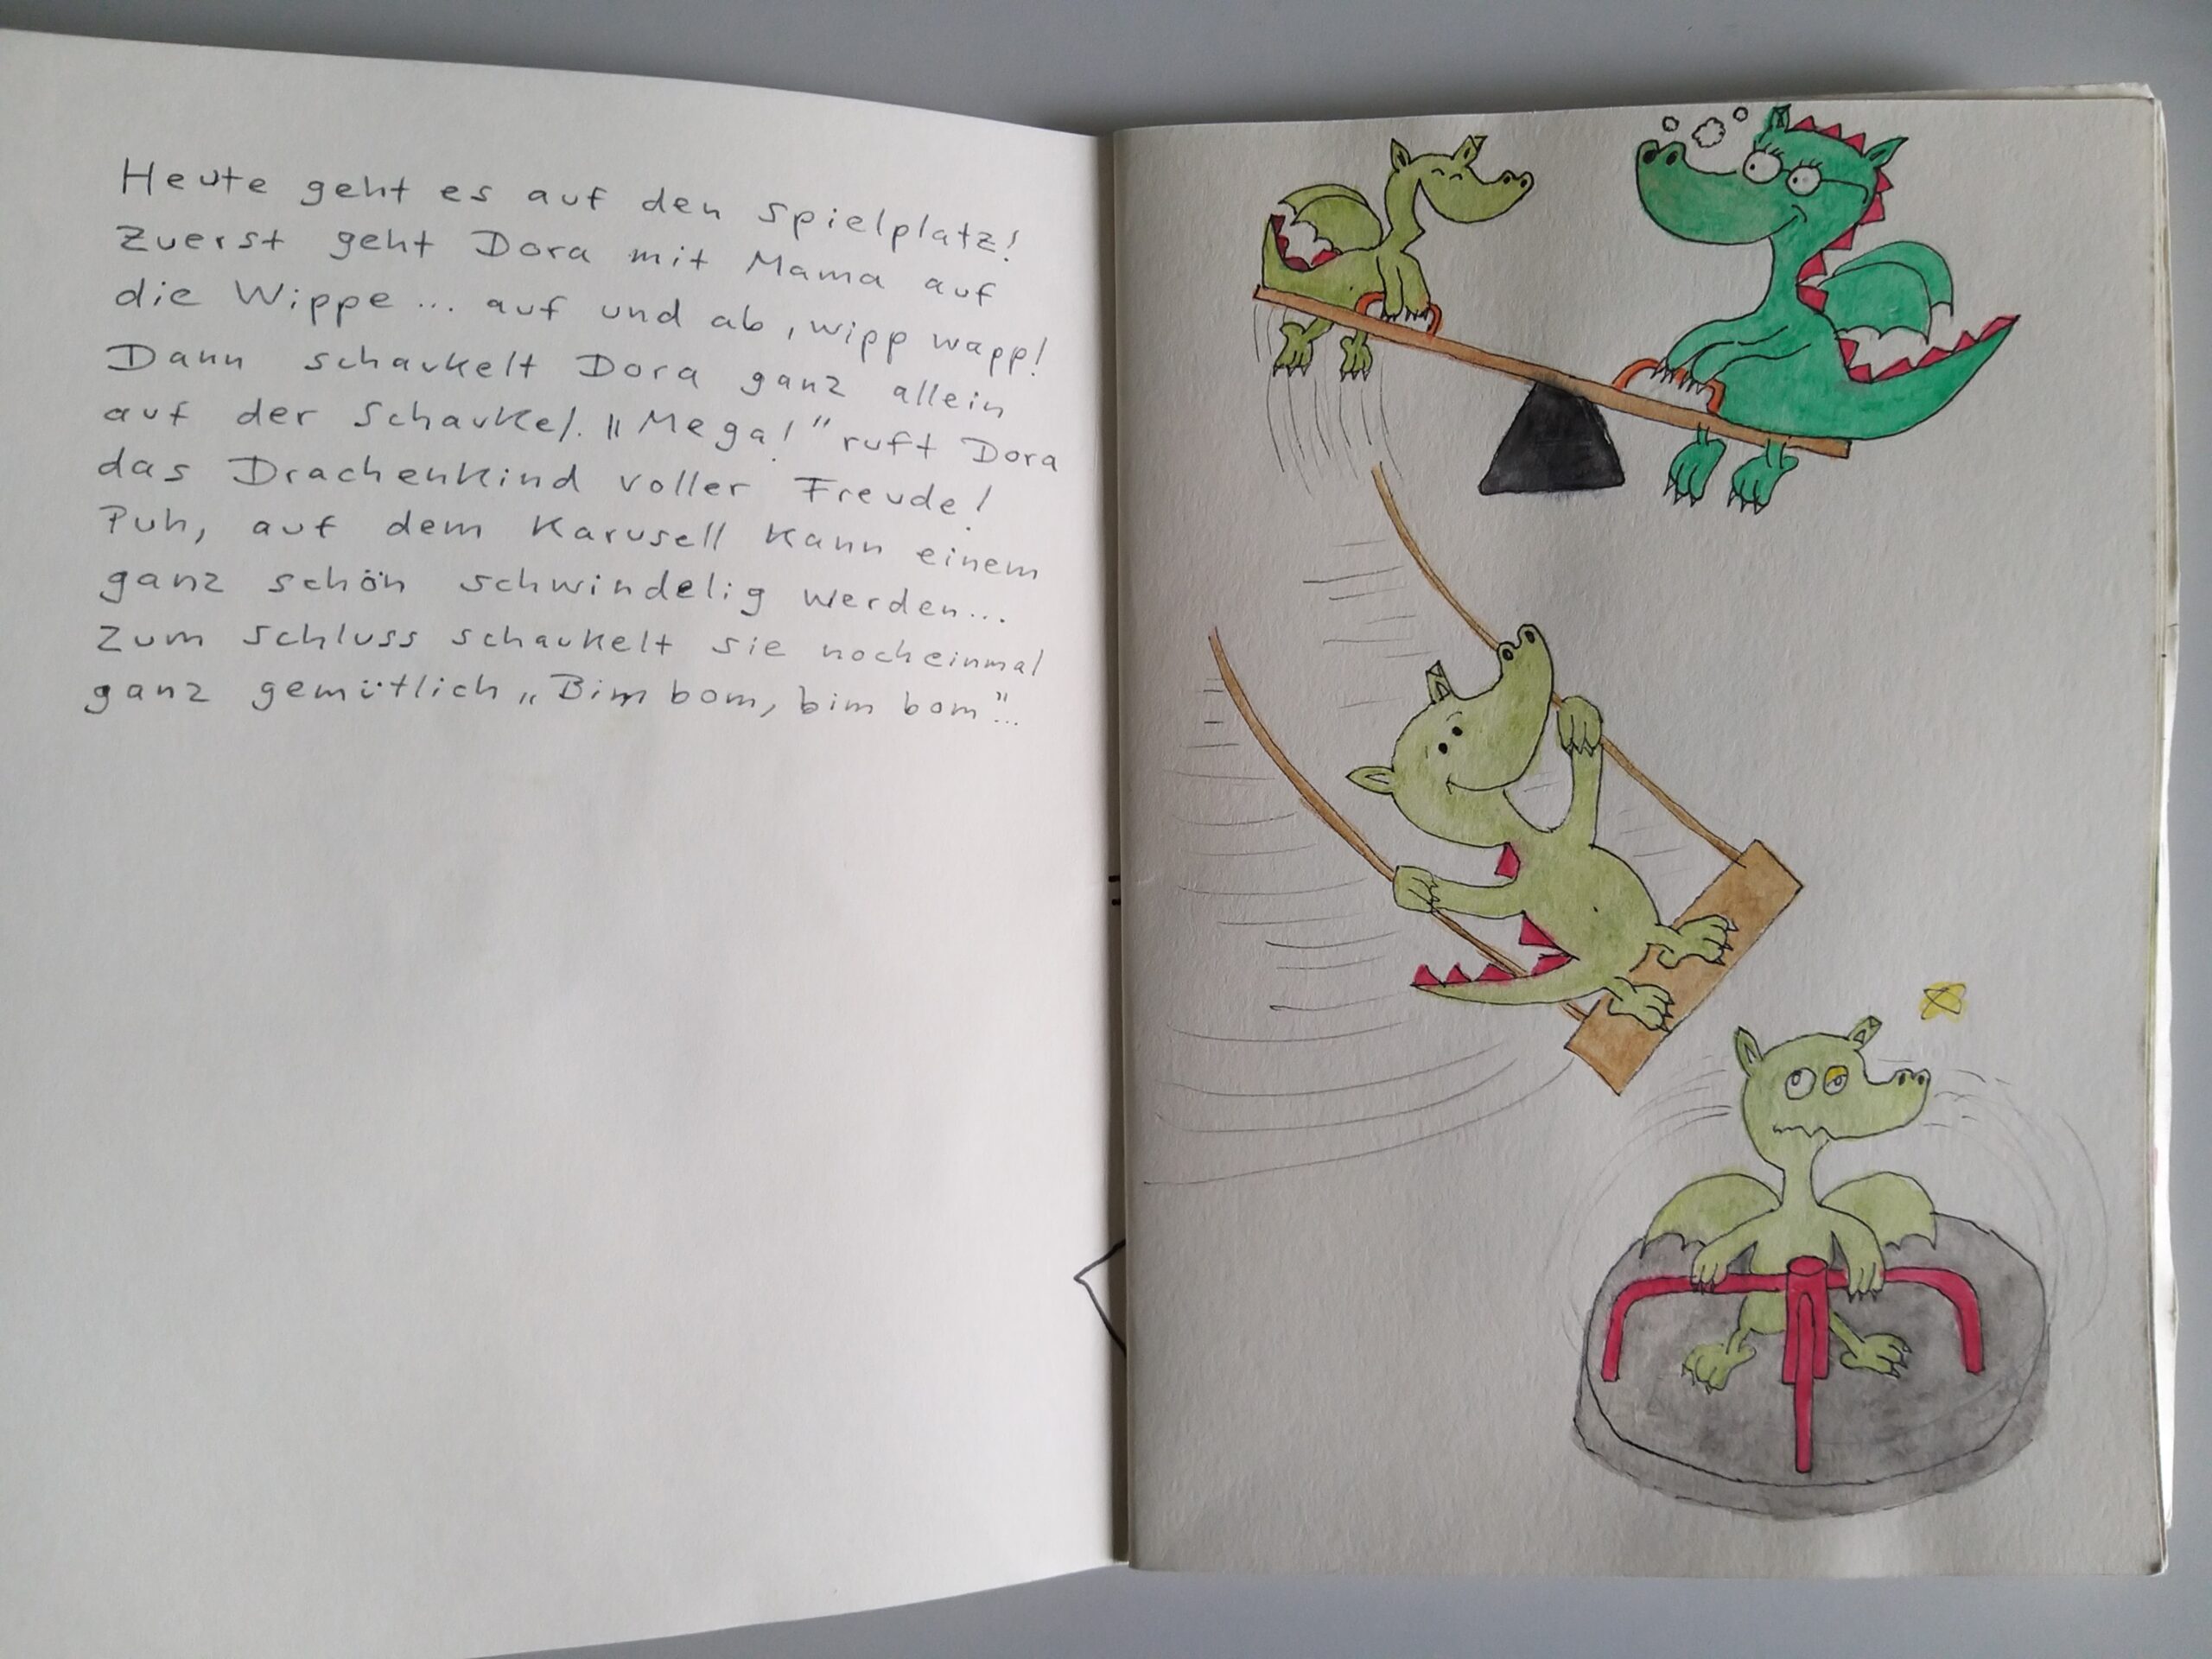 Heute geht es auf den Spielplatz!
Zuerst geht Dora mit Mama auf
die Wippe... auf und ab, wipp wapp!
Dann schaukelt Dora ganz allein
auf der Schaukel. "Mega!" ruft Dora
das Drachenkind voller Freude!
Puh, auf dem Karusell kann einem
ganz schön schwindelig werden...
Zum Schluss schaukelt sie nocheinmal
ganz gemütlich „Bim bom, bim bom"...